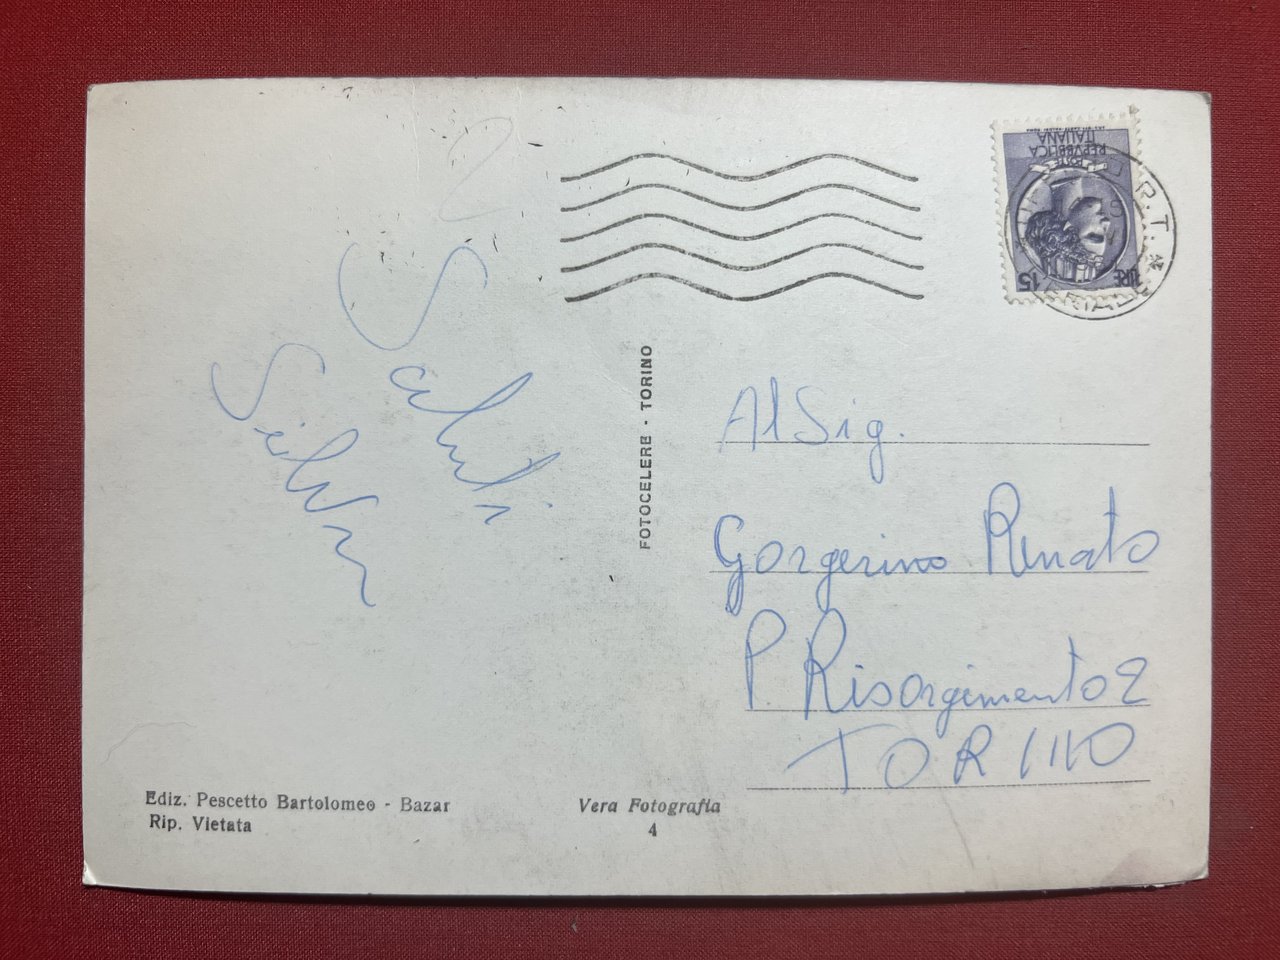 Saluti
Silva
FOTOCELERE - TORINO
POSTE
REPVBBLICA
ITALIANA
LIRE 15
R. T. *
Al Sig.
Gorgerino Renato
P. Risorgimento 2
TORINO
Ediz. Pescetto Bartolomeo - Bazar
Rip. Vietata
Vera Fotografia
4